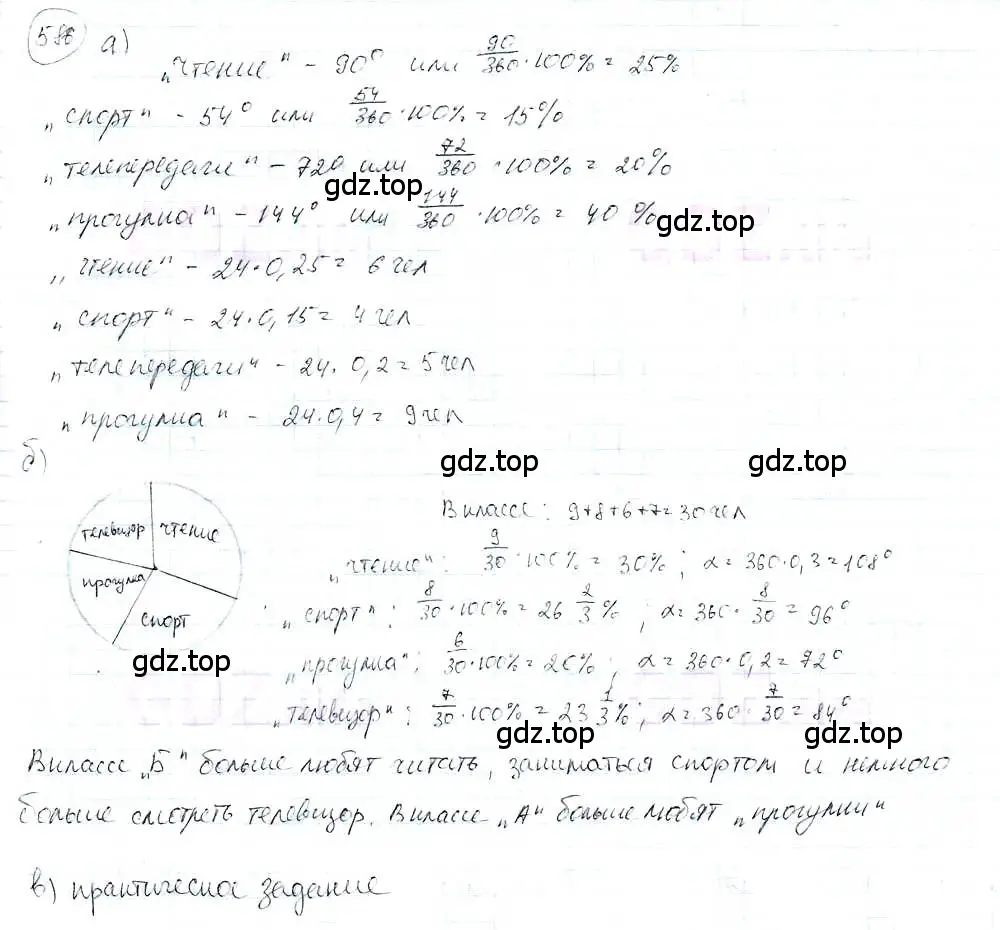 586 а)
„Чтение" - 90° или 90/360 · 100% = 25%
„спорт" - 54° или 54/360 · 100% = 15%
„телепередачи" - 720 или 72/360 · 100% = 20%
gdz.top
„прогулка" - 144° или 144/360 · 100% = 40%
gdz.top
„чтение" - 24 · 0,25 = 6 чел
„спорт" - 24 · 0,15 = 4 чел
„телепередачи" - 24 · 0,2 = 5 чел
„прогулка" - 24 · 0,4 = 9 чел
б)
gdz.top
gdz.top
телевизор чтение
прогулка
спорт
В классе: 9+8+6+7=30 чел
„чтение": 9/30 · 100% = 30%; α = 360 · 0,3 = 108°
„спорт": 8/30 · 100% = 26 2/3 %; α = 360 · 8/30 = 96°
„прогулка": 6/30 · 100% = 20%; α = 360 · 0,2 = 72°
gdz.top
„телевизор": 7/30 · 100% = 23 1/3 %; α = 360 · 7/30 = 84°
gdz.top
gdz.top
В классе „Б" больше любят читать, заниматься спортом и немного
больше смотреть телевизор. В классе „А" больше любят „прогулки"
в) практическое задание